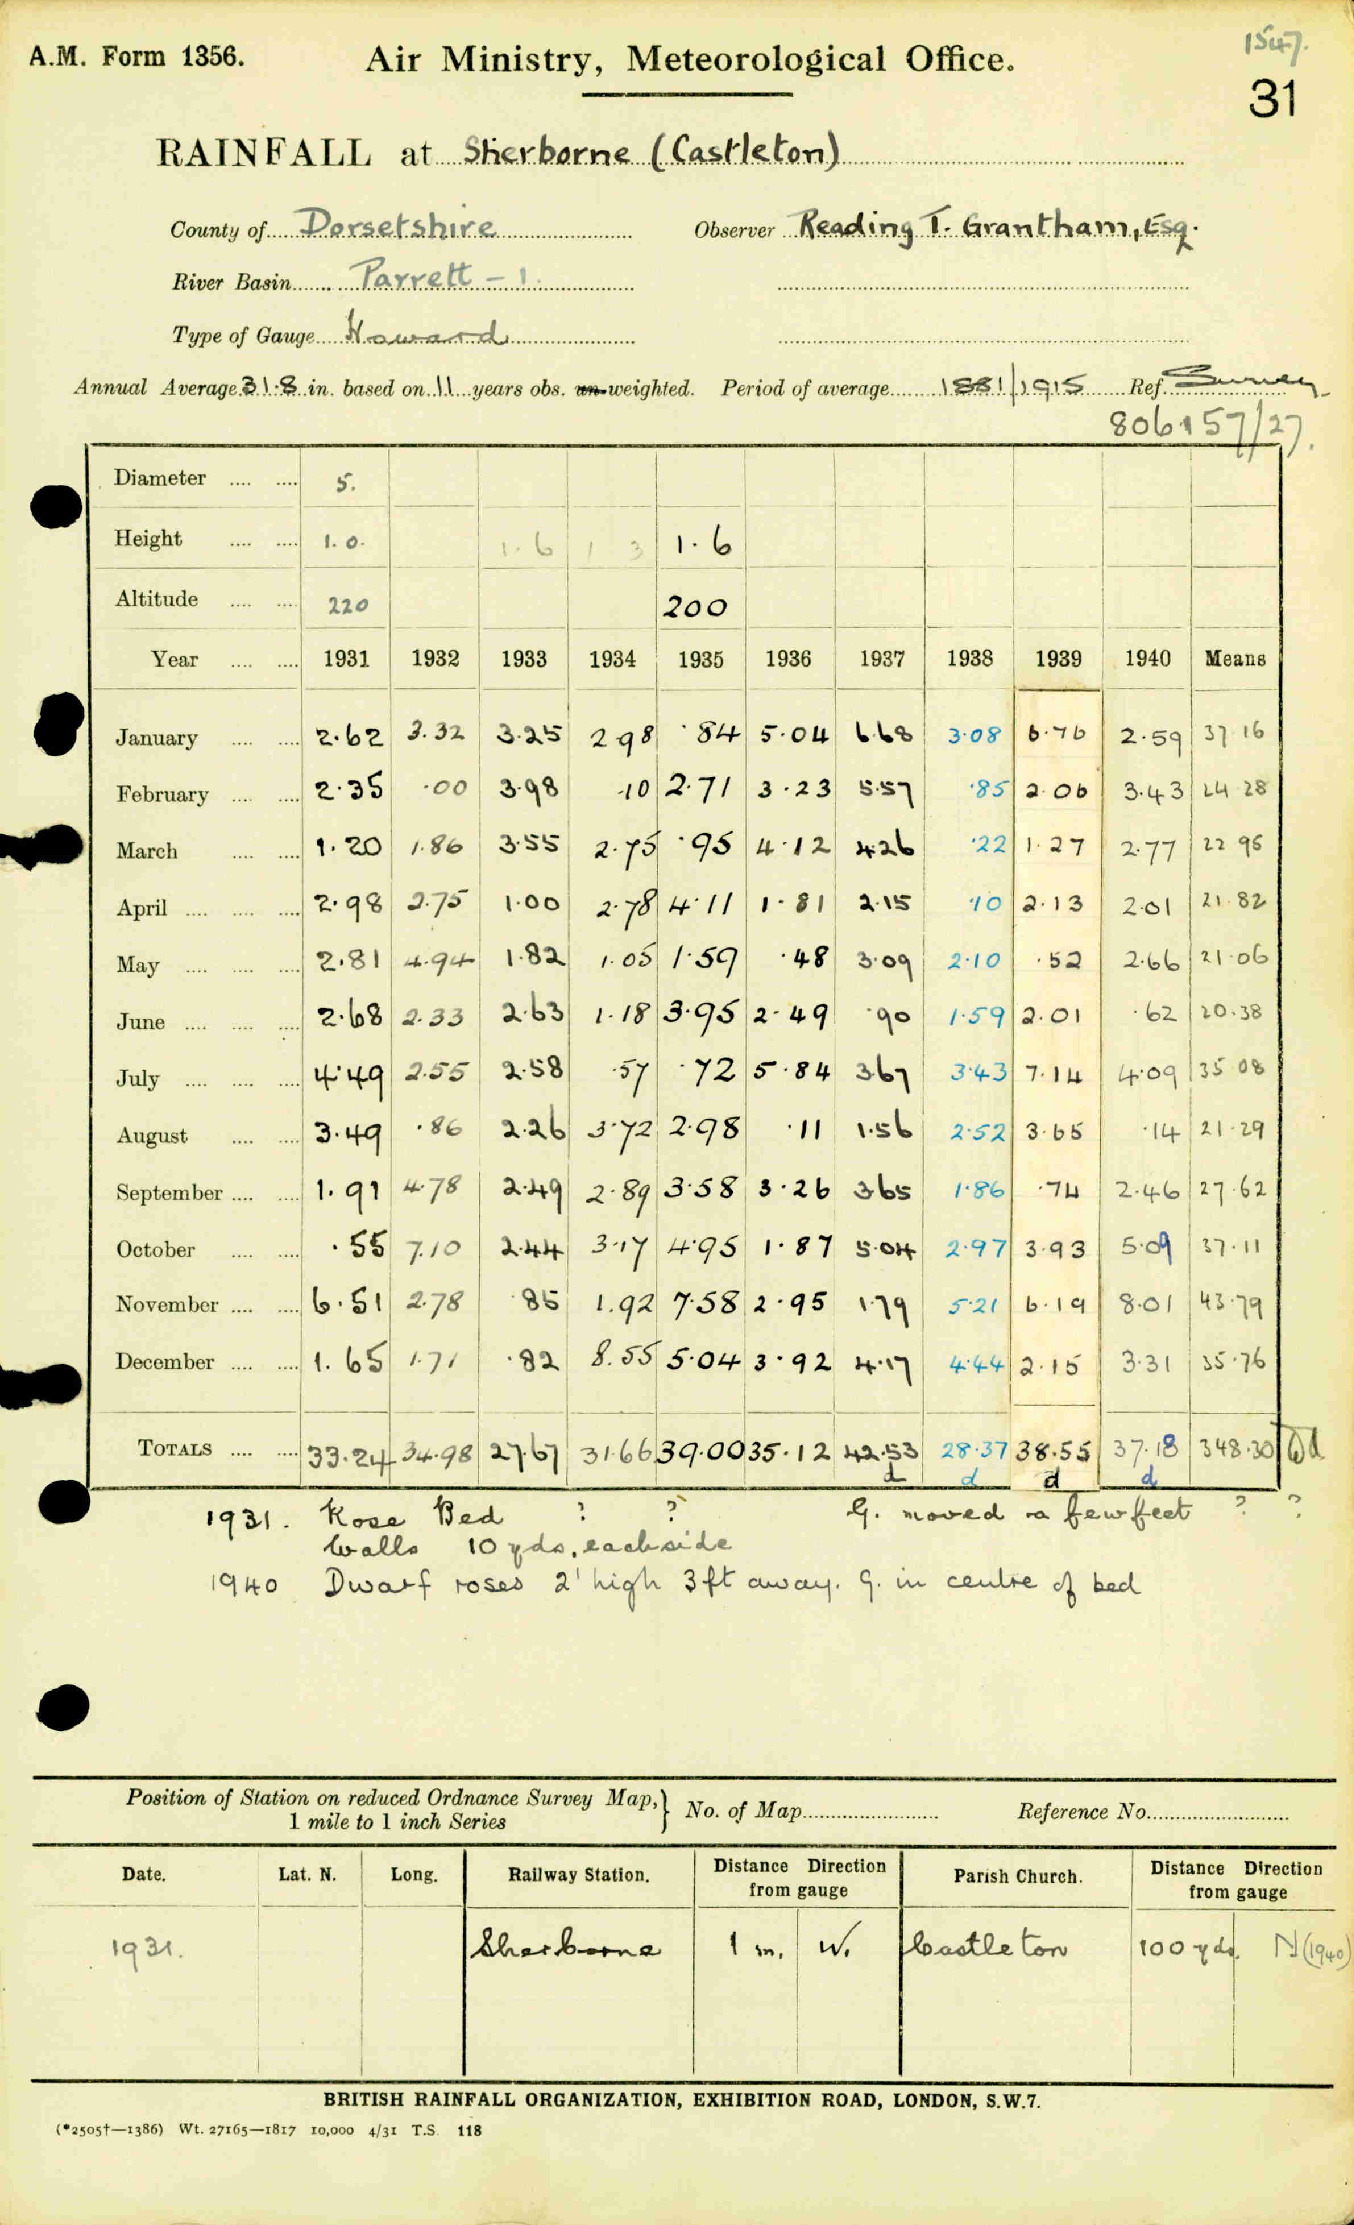 1547.
A.M. Form 1356. Air Ministry, Meteorological Office.
31
RAINFALL at Sherborne (Castleton)
County of Dorsetshire Observer Reading T. Grantham, Esq.
River Basin Parrett - 1.
Type of Gauge Howard
Annual Average 31.8 in. based on 11 years obs. un-weighted. Period of average 1881/1915 Ref. Survey
806157/27.
Diameter 5.
Height 1.0. 1.6 1 3 1.6
Altitude 220 200
Year 1931 1932 1933 1934 1935 1936 1937 1938 1939 1940 Means
January 2.62 3.32 3.25 2.98 .84 5.04 6.68 3.08 6.76 2.59 37.16
February 2.35 .00 3.98 .10 2.71 3.23 5.57 .85 2.06 3.43 24.28
March 1.20 1.86 3.55 2.75 .95 4.12 4.26 .22 1.27 2.77 22.95
April 2.98 2.75 1.00 2.78 4.11 1.81 2.15 .10 2.13 2.01 21.82
May 2.81 4.94 1.82 1.05 1.59 .48 3.09 2.10 .52 2.66 21.06
June 2.68 2.33 2.63 1.18 3.95 2.49 .90 1.59 2.01 .62 20.38
July 4.49 2.55 2.58 .57 .72 5.84 3.67 3.43 7.14 4.09 35.08
August 3.49 .86 2.26 3.72 2.98 .11 1.56 2.52 3.65 .14 21.29
September 1.91 4.78 2.49 2.89 3.58 3.26 3.65 1.86 .74 2.46 27.62
October .55 7.10 2.44 3.17 4.95 1.87 5.04 2.97 3.93 5.09 37.11
November 6.51 2.78 .85 1.92 7.58 2.95 1.79 5.21 6.19 8.01 43.79
December 1.65 1.71 .82 8.55 5.04 3.92 4.17 4.44 2.15 3.31 35.76
TOTALS 33.24 34.98 27.67 31.66 39.00 35.12 42.53 28.37 38.55 37.18 348.30
d d d d
1931. Rose Bed ? ? G. moved a few feet ? ?
Walls 10 yds, each side
1940 Dwarf roses 2' high 3 ft away. G. in centre of bed
Position of Station on reduced Ordnance Survey Map, } No. of Map Reference No.
1 mile to 1 inch Series
Date. Lat. N. Long. Railway Station. Distance Direction from gauge Parish Church. Distance Direction from gauge
1931. Sherborne 1 m. W. Castleton 100 yds. N (1940)
BRITISH RAINFALL ORGANIZATION, EXHIBITION ROAD, LONDON, S.W.7.
(*2505†—1386) Wt. 27165—1817 10,000 4/31 T.S. 118